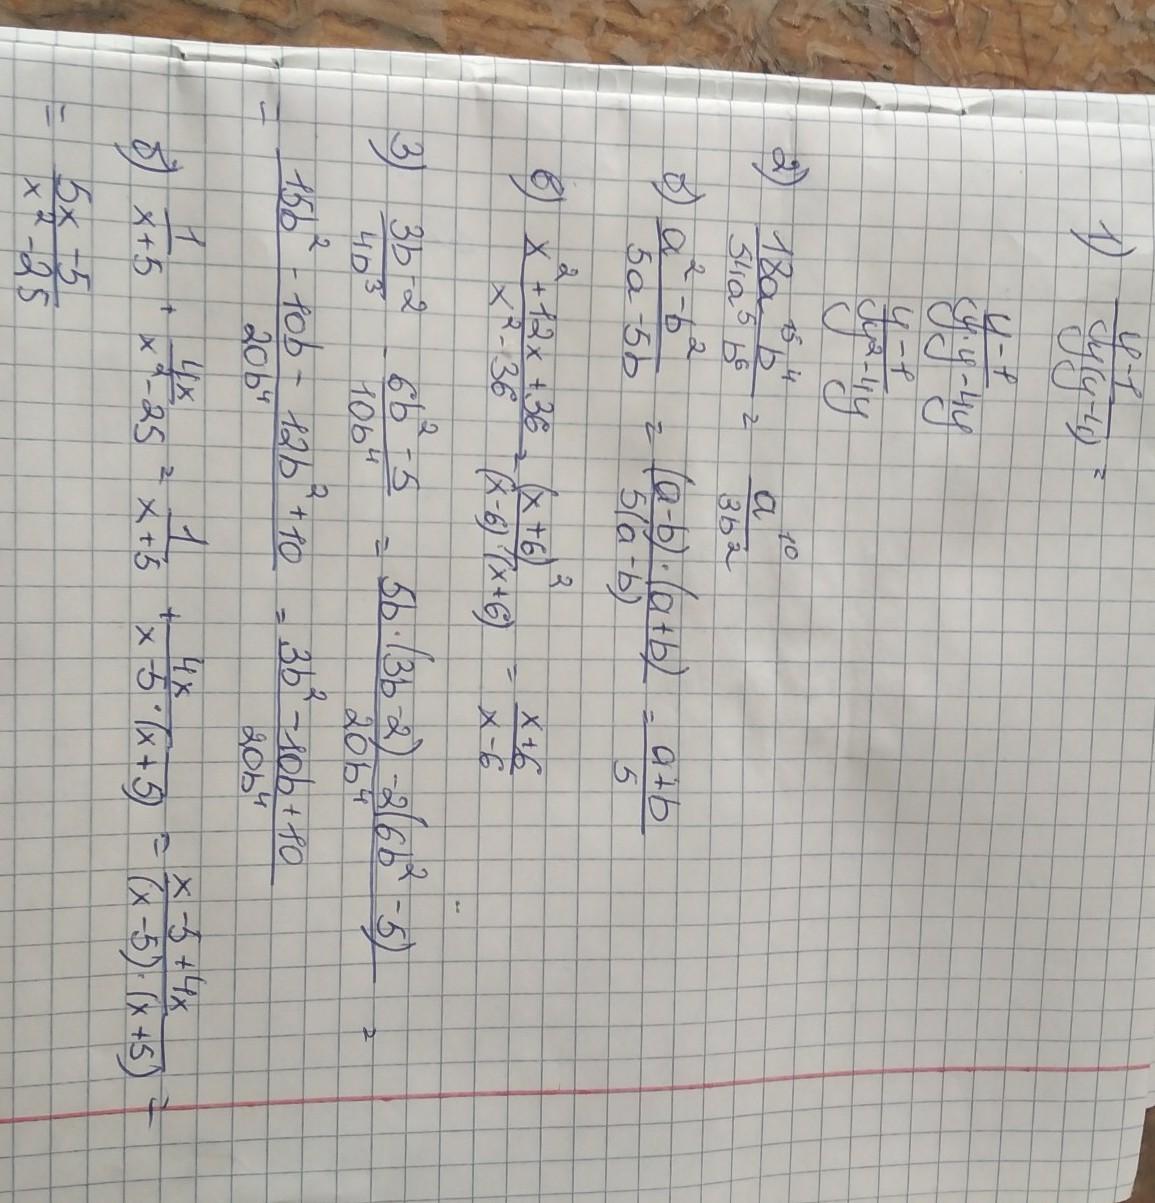 1) (y-1)/(y(y-4)) =
(y-1)/(y·y-4y)
(y-1)/(y²-4y)
2) (18a¹⁵b⁴)/(54a⁵b⁶) = a¹⁰/(3b²)
б) (a²-b²)/(5a-5b) = ((a-b)·(a+b))/(5(a-b)) = (a+b)/5
в) (x²+12x+36)/(x²-36) = (x+6)²/((x-6)·(x+6)) = (x+6)/(x-6)
3) (3b-2)/(4b³) - (6b²-5)/(10b⁴) = (5b·(3b-2)-2(6b²-5))/(20b⁴) =
= (15b²-10b-12b²+10)/(20b⁴) = (3b²-10b+10)/(20b⁴)
б) 1/(x+5) + 4x/(x²-25) = 1/(x+5) + 4x/(x-5·(x+5)) = (x-5+4x)/((x-5)·(x+5)) =
= (5x-5)/(x²-25)